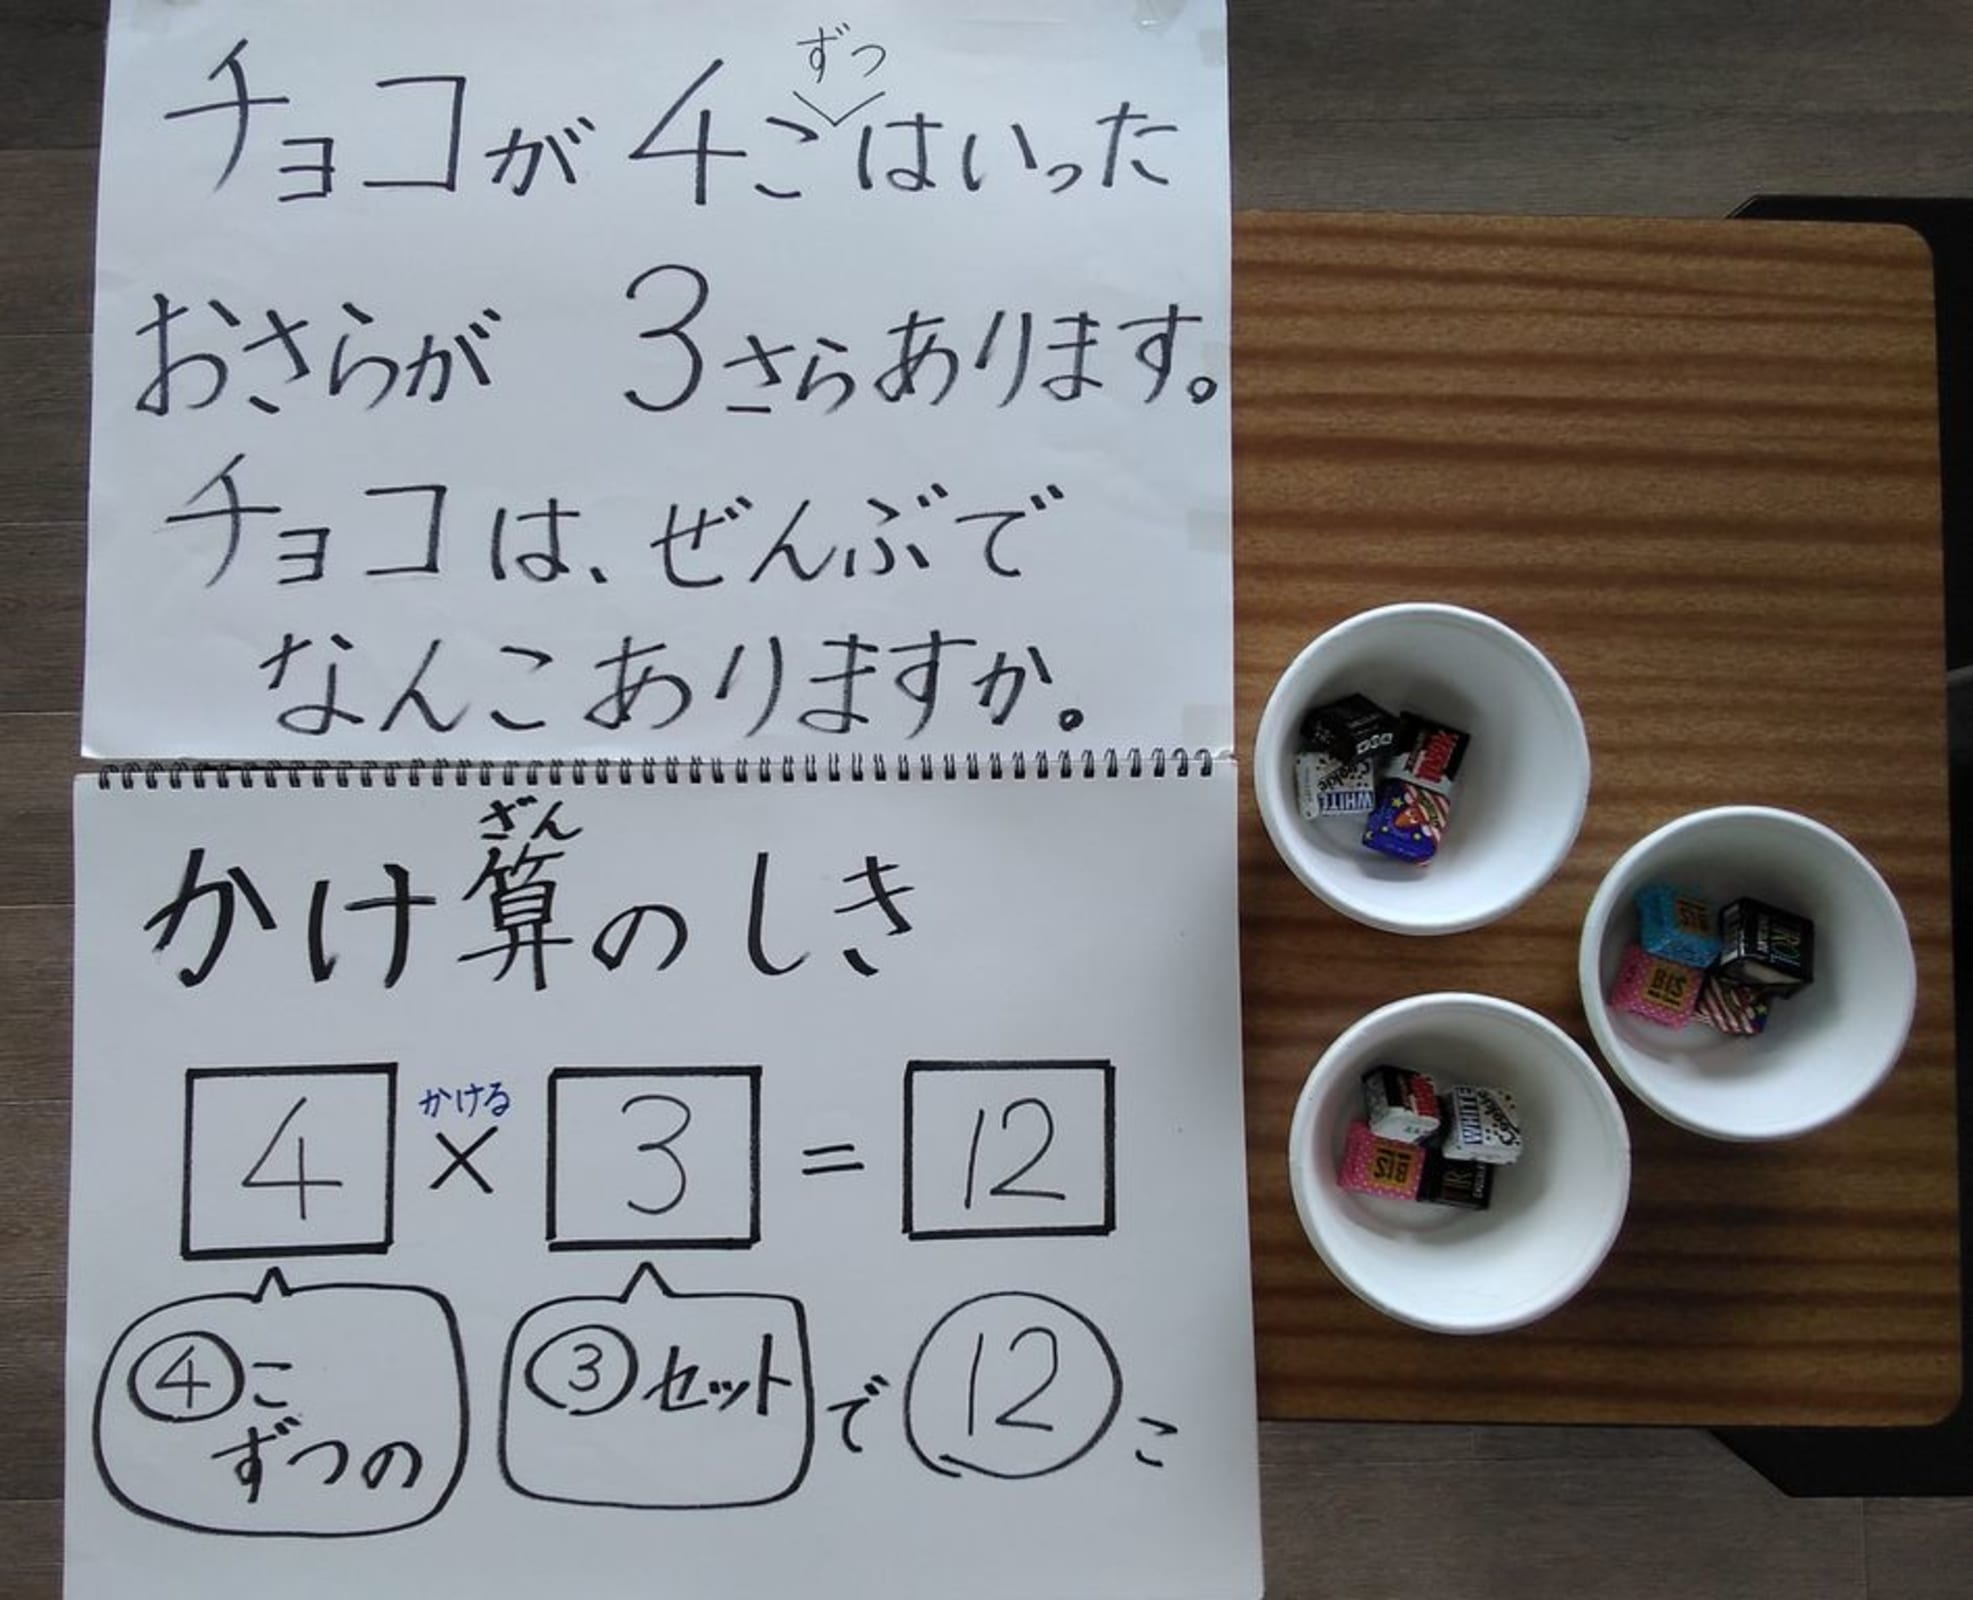 ずつ
チョコが 4こはいった
おさらが 3さらあります。
チョコは、ぜんぶで
なんこありますか。
ざん
かけ算のしき
かける
4 × 3 = 12
④こ ③セット で 12 こ
ずつの
Cookie
WHITE
BIS
BIS
Cookie
WHITE